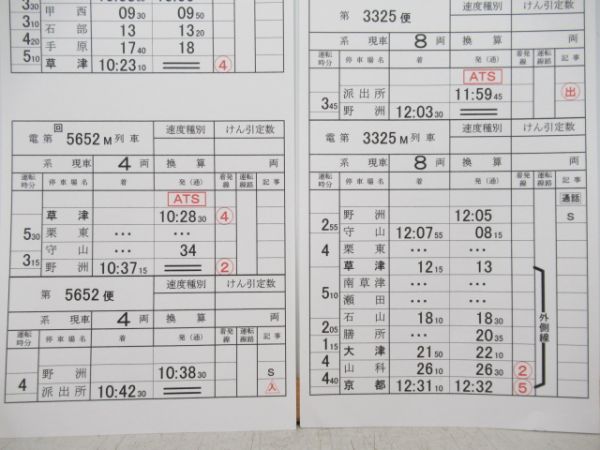 甲西 09 30 09 50
3 10 石部 13 13 20
4 20 手原 17 40 18
5 10 草津 10:23 10 ④
電第 回 5652M列車 速度種別 けん引定数
系 現車 4 両 換算 両
運転時分 停車場名 着 発(通) 着発線 運転線路 記事
ATS
草津 10:28 30 ④
5 30 栗東 … …
守山 … 34
3 15 野洲 10:37 15 ②
第 5652便 速度種別 けん引定数
系 現車 4 両 換算 両
運転時分 停車場名 着 発(通) 着発線 運転線路 記事
野洲 10:38 30 S
4 派出所 10:42 30 入
第 3325便 速度種別 けん引定数
系 現車 8 両 換算 両
運転時分 停車場名 着 発(通) 着発線 運転線路 記事
ATS
派出所 11:59 45 出
3 45 野洲 12:03 30
電第 3325M列車 速度種別 けん引定数
系 現車 8 両 換算 両
運転時分 停車場名 着 発(通) 着発線 運転線路 記事
通話
野洲 12:05 S
2 55 守山 12:07 55 08 15
4 栗東 … …
草津 12 15 13
南草津 … …
5 10 瀬田 … …
石山 18 10 18 30
2 05 膳所 … 20 35
1 15 大津 21 50 22 10
4 山科 26 10 26 30 ②
4 40 京都 12:31 10 12:32 ⑤
外側線